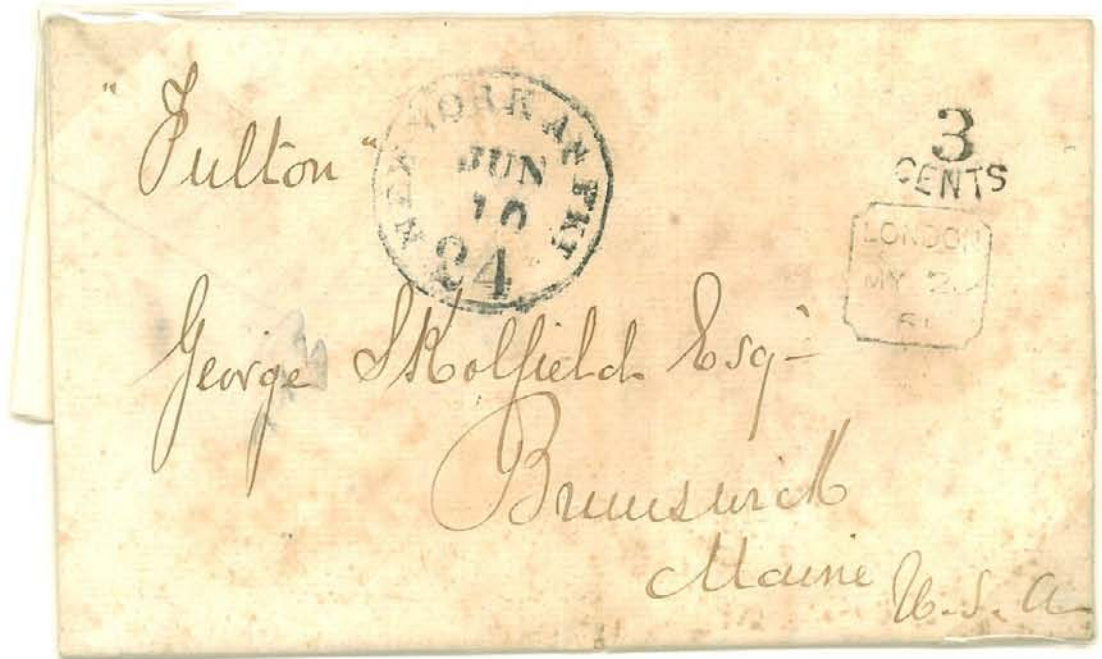 "Fulton"
NEW YORK AM PKT
JUN
10
24
3
CENTS
LONDON
MY 2
61
George Skolfield Esqr
Brunswick
Maine U.S.A